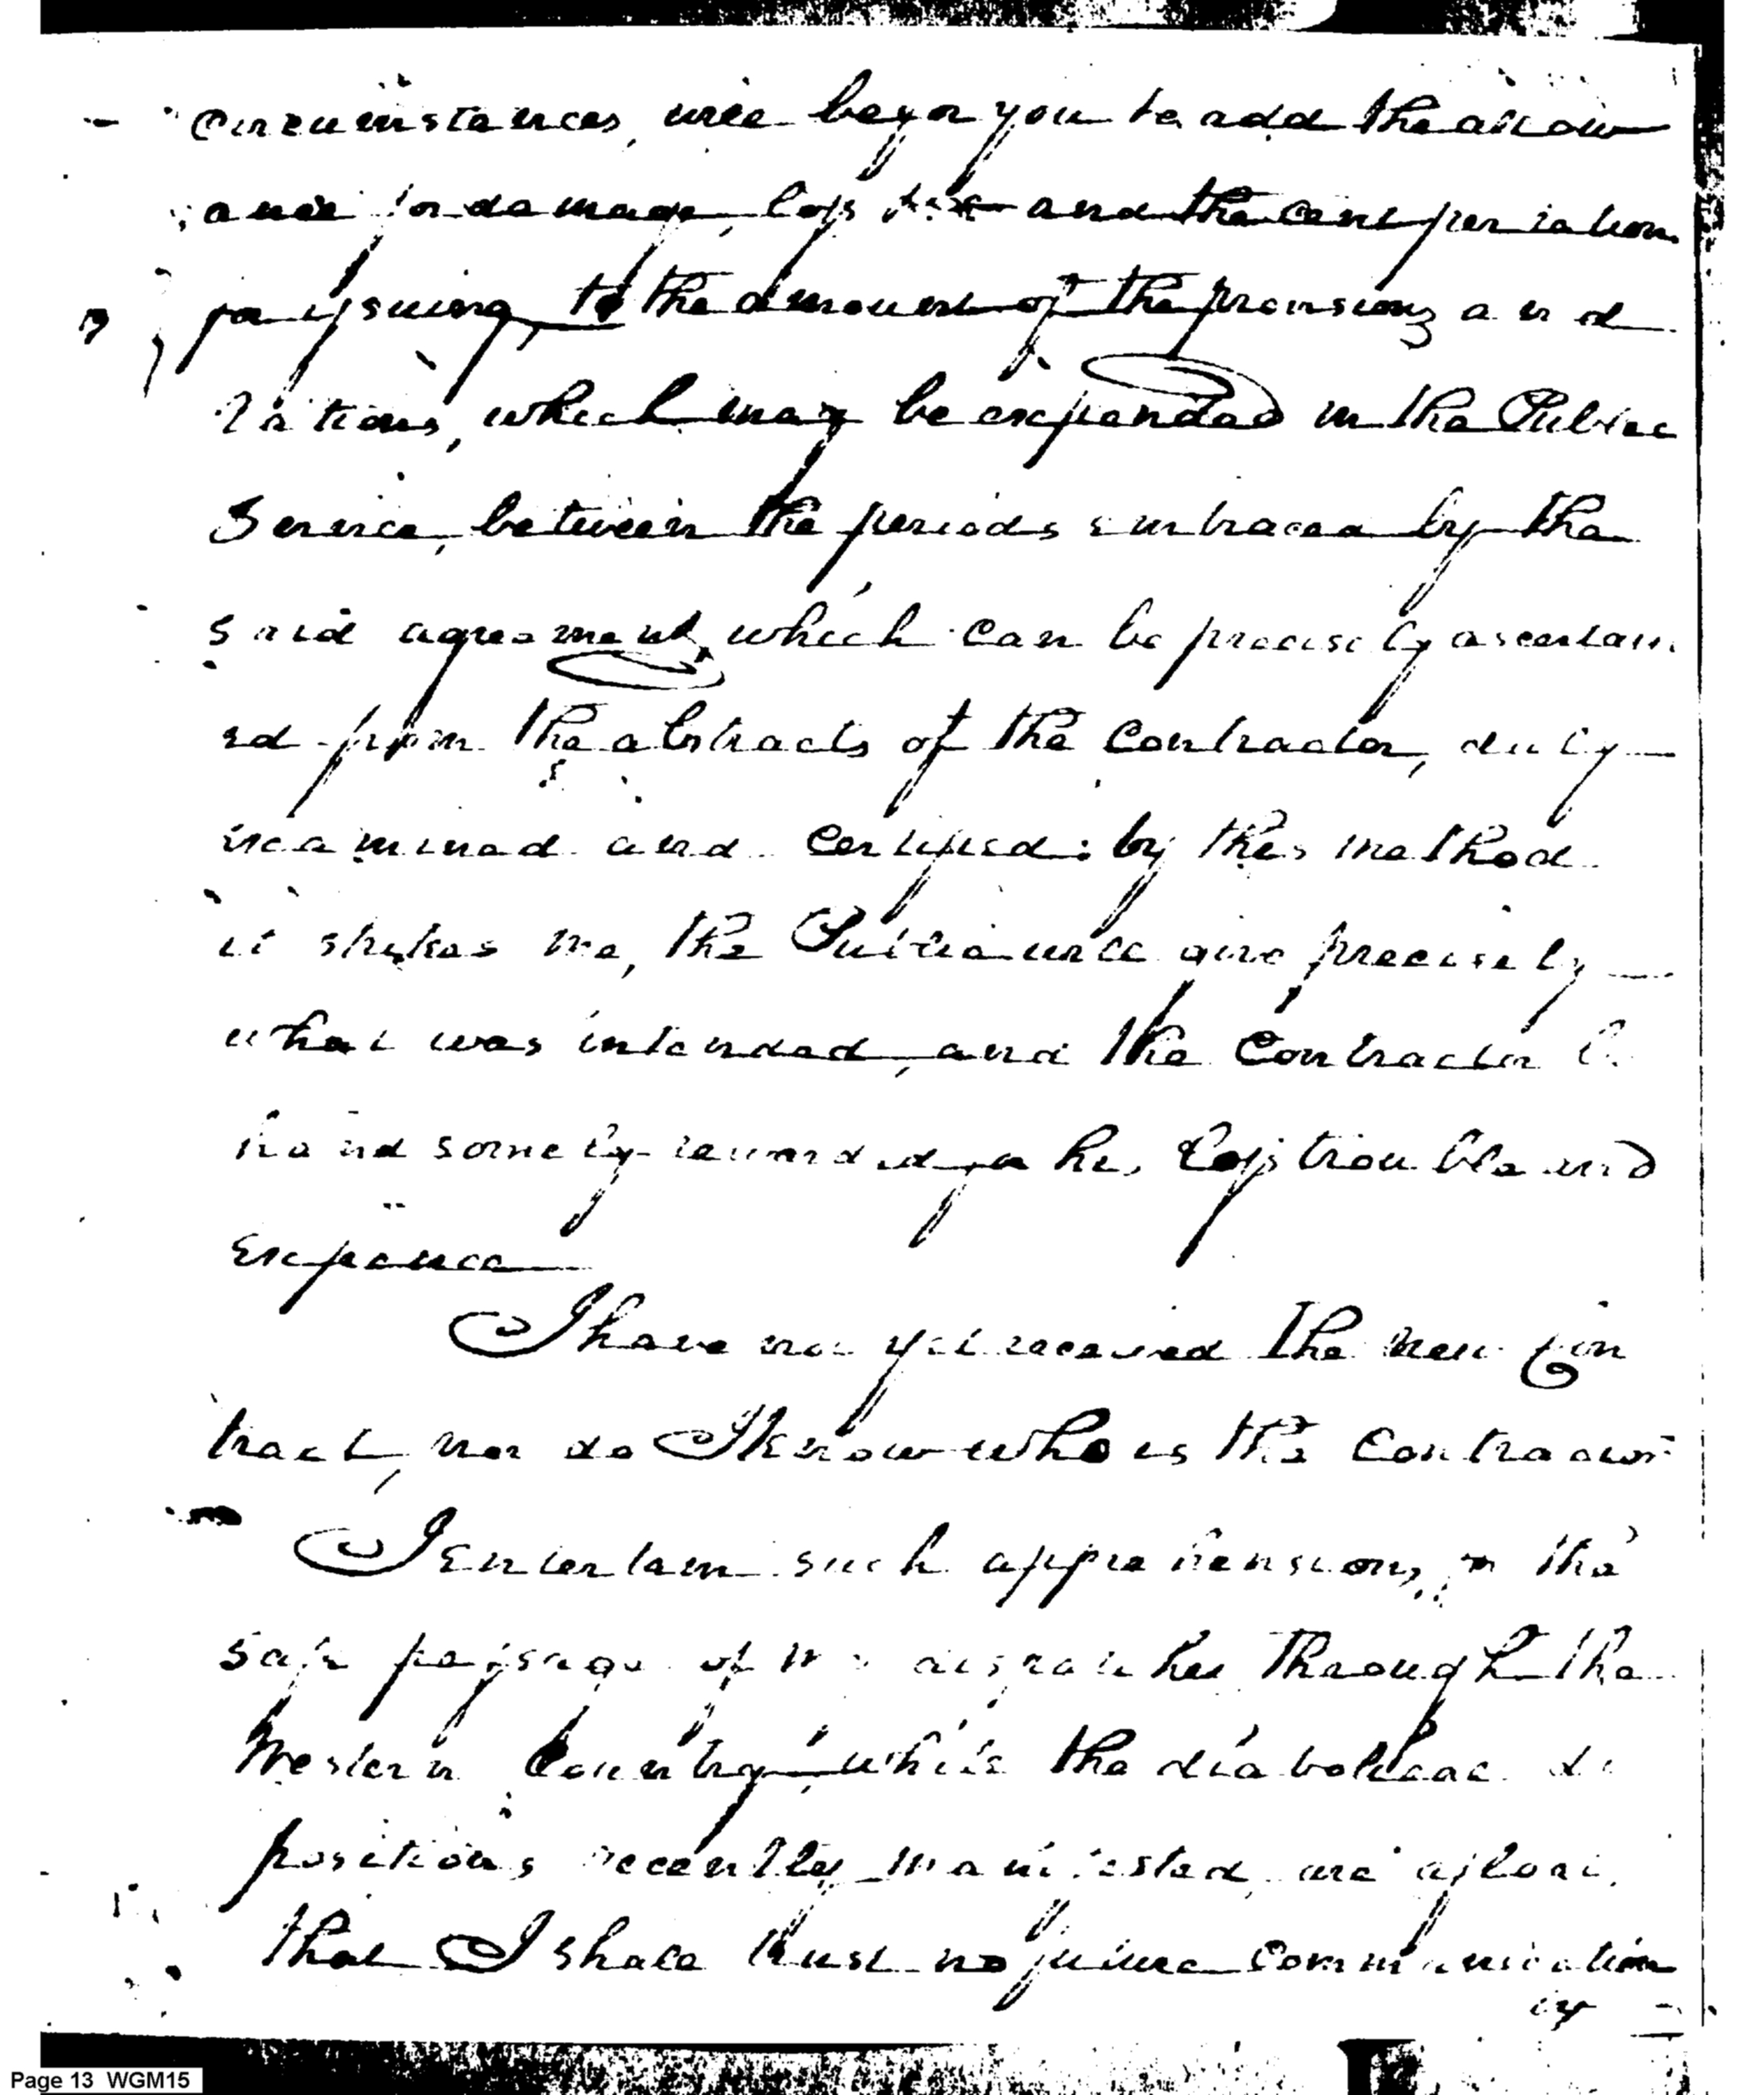 circumstances, will be for you to add the allow
ance for damage, loss &c and the compensation
for issuing, to the amount of the provisions and
rations, which may be expended in the Public
Service, between the periods embraced by the
said agreement, which can be precisely ascertain
ed from the abstracts of the Contractor, duly
examined and certified: by this method
it strikes me, the Public will give precisely
what was intended, and the Contractor be
handsomely rewarded for his loss trouble and
expence
I have not yet received the new Con
tract, nor do I know who is the Contractor
I entertain such apprehensions, for the
safe passage of my dispatches through the
Western Country, while the diabolical dis
positions recently manifested, are afloat,
that I shall trust no future communication
Page 13 WGM15